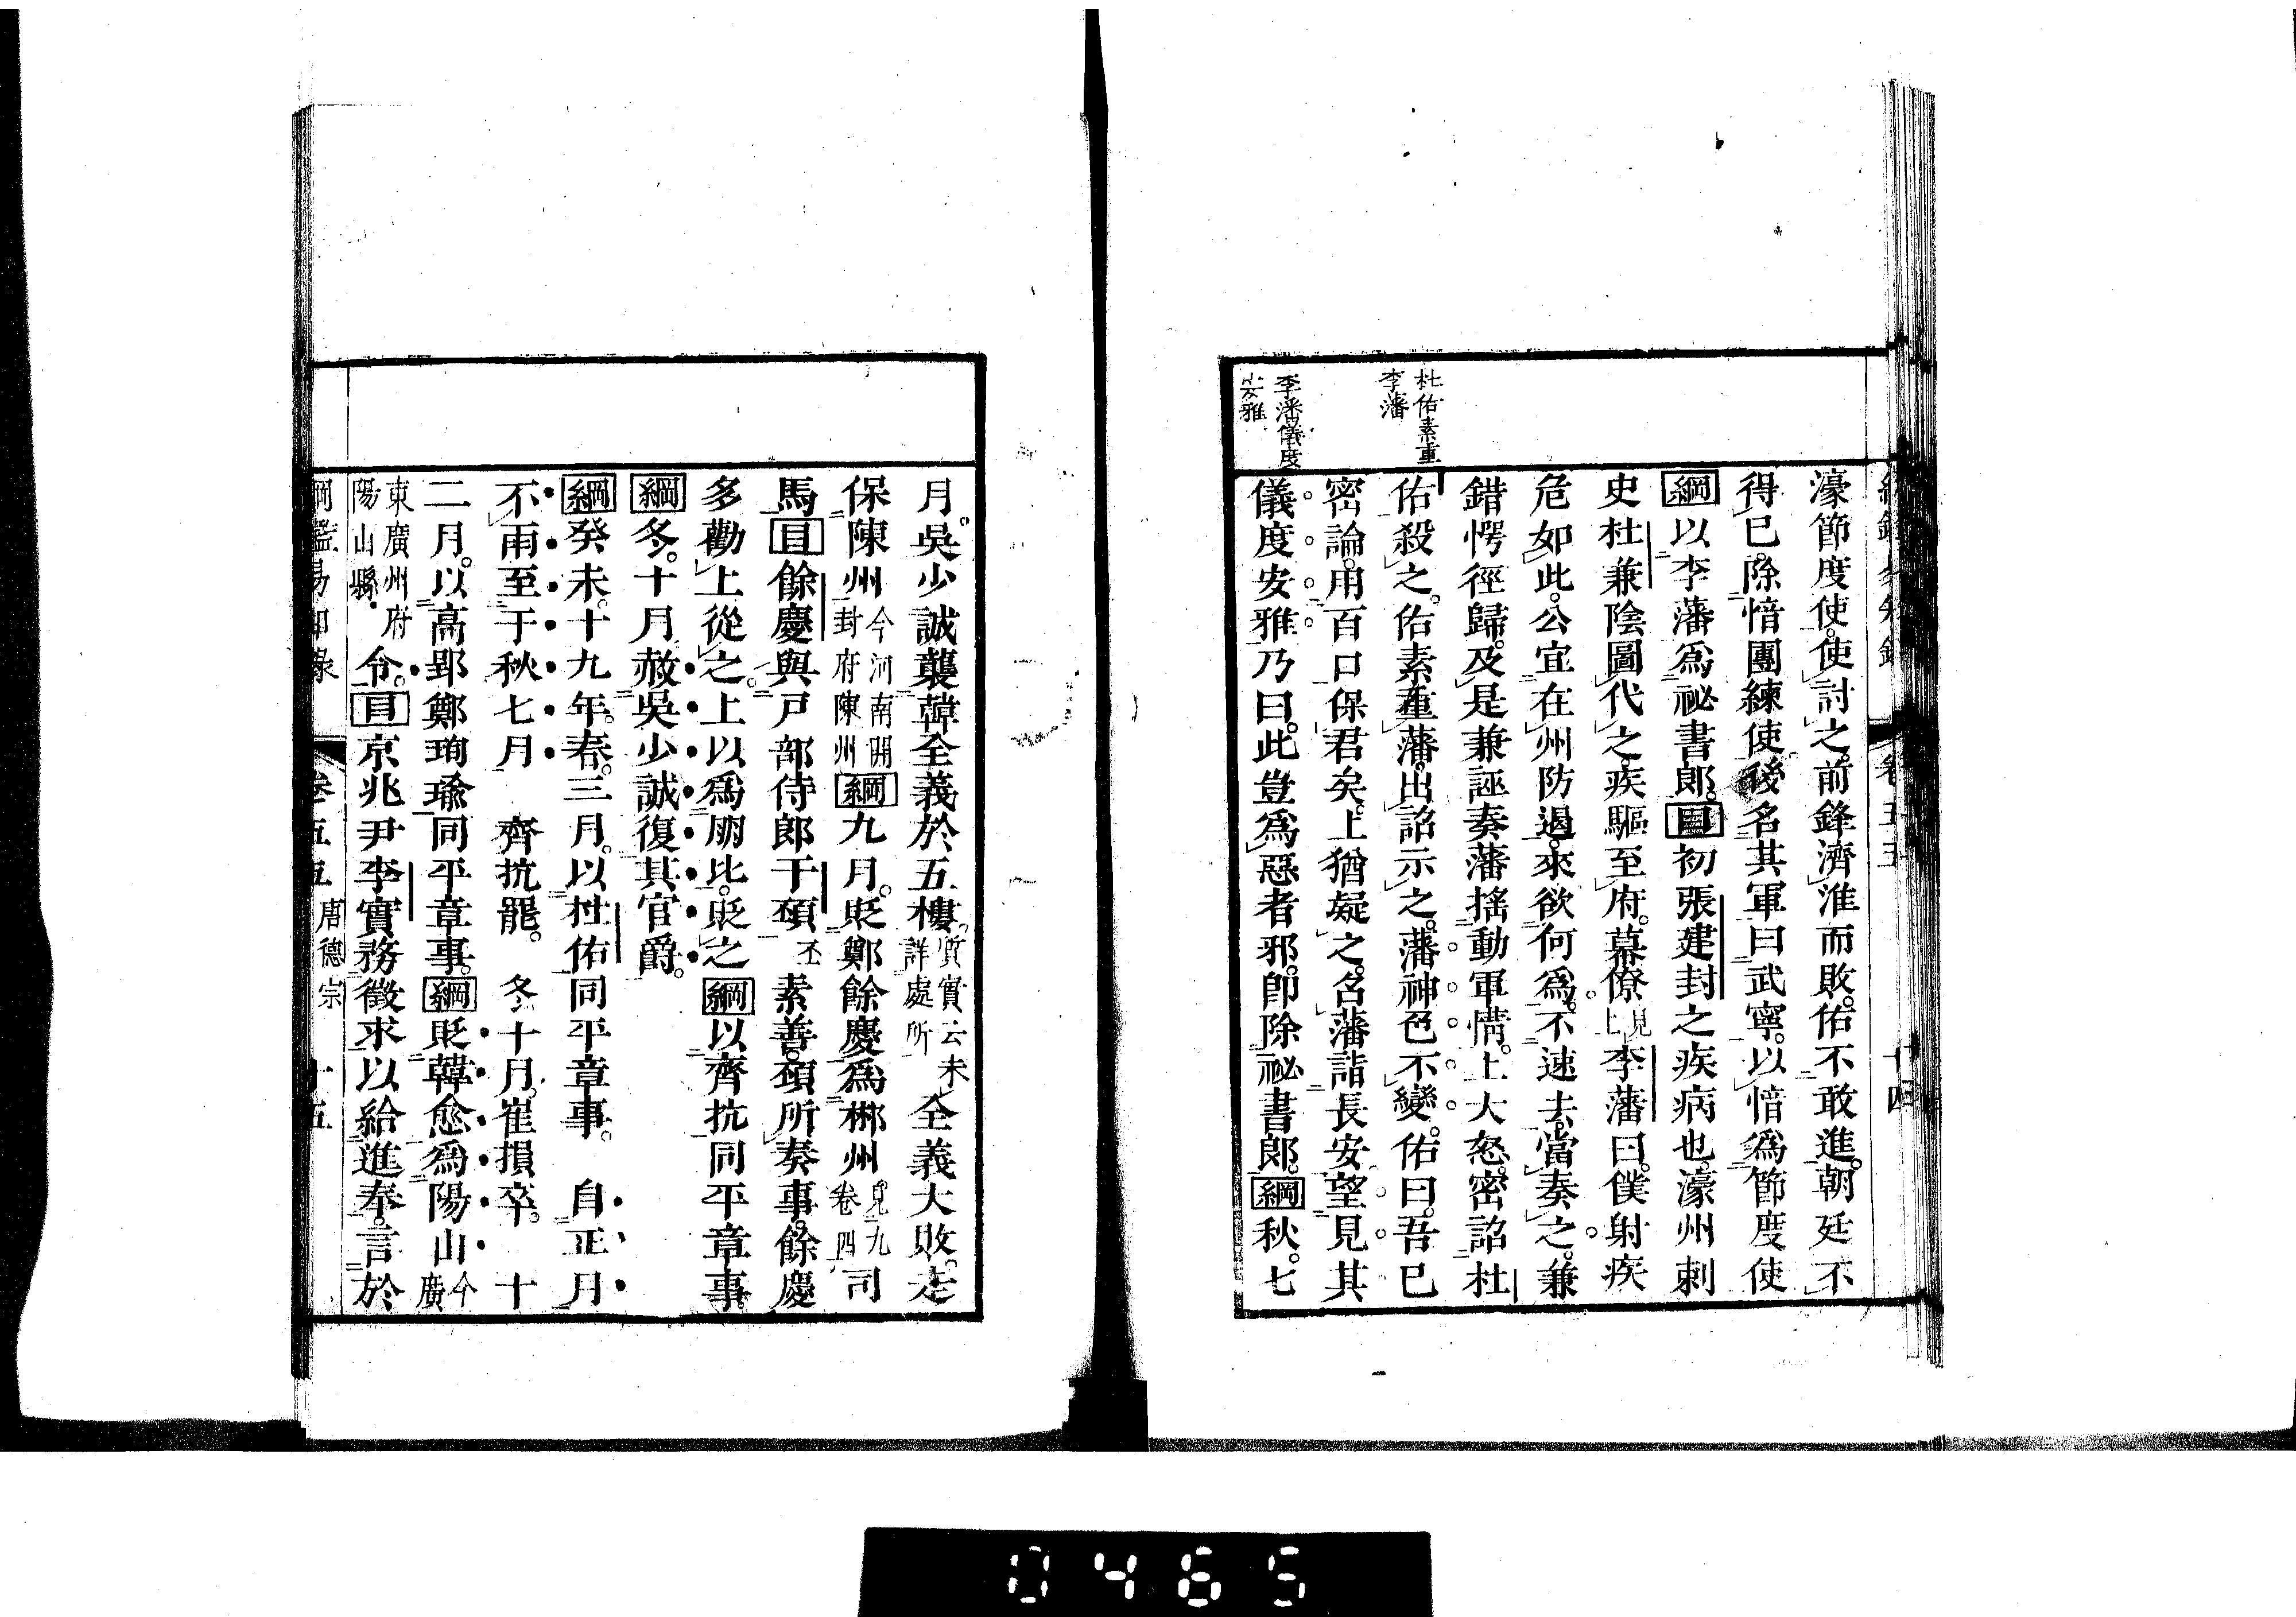 杜佑素重
李藩
李藩儀度
安雅
濠節度使。使討之。前鋒濟淮而敗。佑不敢進。朝廷不
得已。除愔團練使。後名其軍曰武寧。以愔爲節度使
綱以李藩爲祕書郎。目初張建封之疾病也。濠州刺
史杜兼陰圖代之。疾驅至府。幕僚見上李藩曰。僕射疾
危如此。公宜在州防遏。來欲何爲。不速去。當奏之。兼
錯愕徑歸。及是兼誣奏藩搖動軍情。上大怒。密詔杜
佑殺之。佑素重藩。出詔示之。藩神色不變。佑曰。吾已
密論。用百口保君矣。上猶疑之。召藩詣長安。望見其
儀度安雅。乃曰。此豈爲惡者邪。卽除祕書郎。綱秋。七
月。吳少誠襲韓全義於五樓。質實云未詳處所全義大敗。走
保陳州今河南開封府陳州綱九月。貶鄭餘慶爲郴州見九卷四司
馬目餘慶與戸部侍郎于頔丕素善。頔所奏事。餘慶
多勸上從之。上以爲朋比。貶之綱以齊抗同平章事。
綱冬。十月。赦吳少誠。復其官爵。
綱癸未。十九年。春。三月。以杜佑同平章事。自正月
不雨至于秋七月 齊抗罷。冬十月。崔損卒。十
二月。以高郢鄭珣瑜同平章事。綱貶韓愈爲陽山今廣
東廣州府陽山縣。令。目京兆尹李實務徵求以給進奉。言於
卷五五 唐德宗 十五
0465